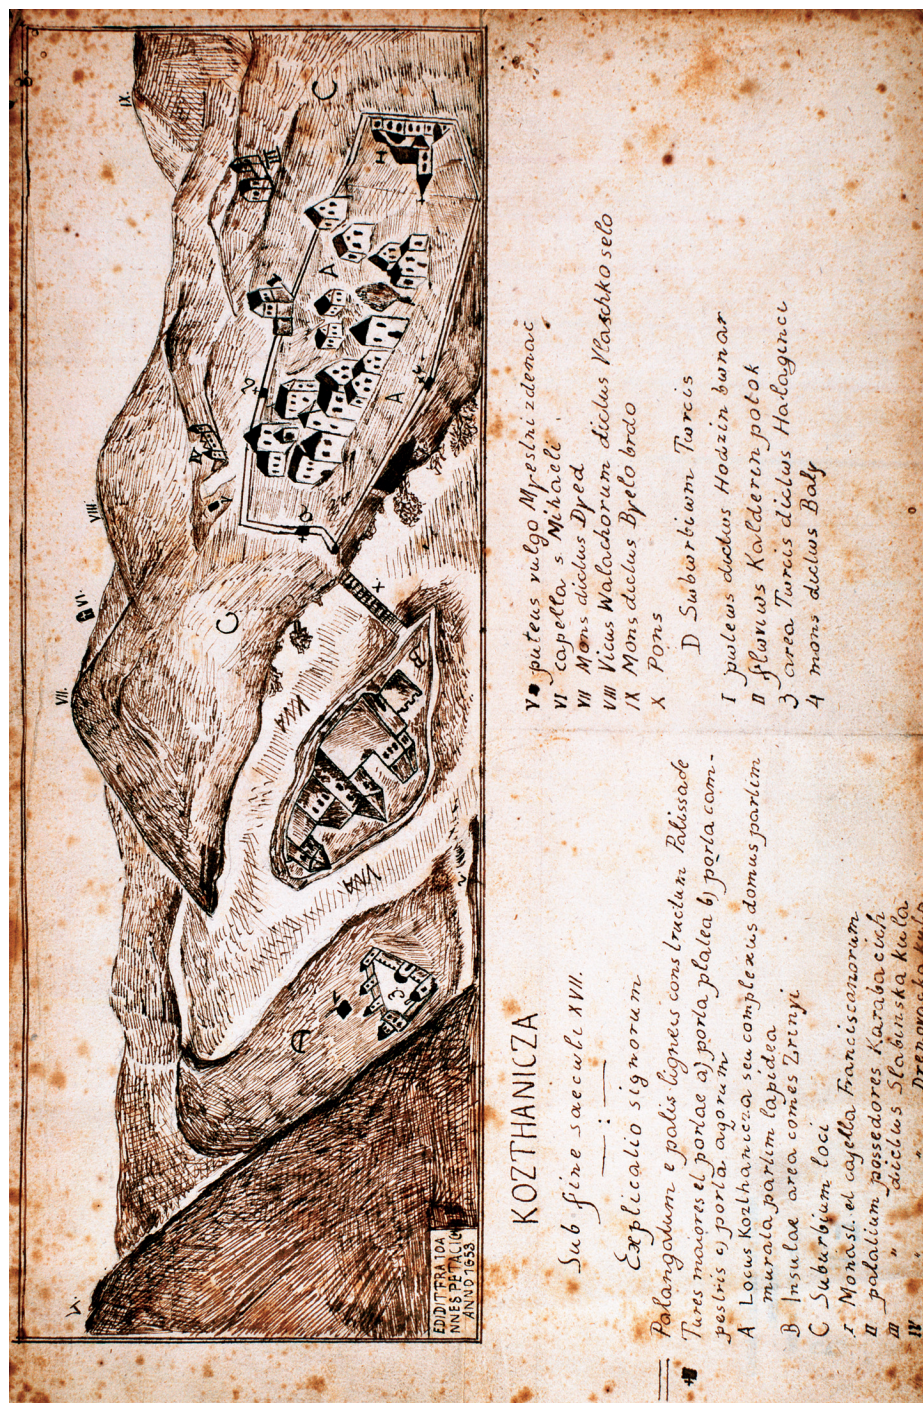 EDIDIT FRA IOA
NNES PETACIC
ANNO 1658
KOZTHANICZA
Sub fine saeculi XVII.
Explicatio signorum
Palangaum e palis ligneis constructum Palissade
Tures maiores et portae a) porta platea b) porta cam-
pestris c) porta agorum
A Locus Kozthanicza seu complexus domus partim
murata partim lapidea
B Insulae area comes Zrinyi
C Suburbium loci
I Monast. et capella Franciscanorum
II palatium possedores Karabacich
III " dictus Slabinska kula
IV "
V puteus vulgo Mjestni zdenac
VI capella s Mihaeli
VII Mons dictus Djed
VIII Vicus Walachorum dictus Vlaschko selo
IX Mons dictus Bjelo brdo
X Pons
D Suburbium Turcis
I puteus dictus Hodzin bunar
II fluvius Kalderin potok
3 area Turcis dictus Halaginci
4 mons dictus Balj
VNNA
VNNA
VII
VI.
VIII
IX
C
C
A
A
B
H
X